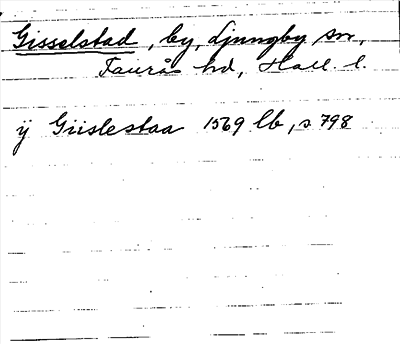 Gisselstad, by, Ljungby sn,
Faurås hd, Hall. l.
ÿ Giislestaa 1569 lb, s 798